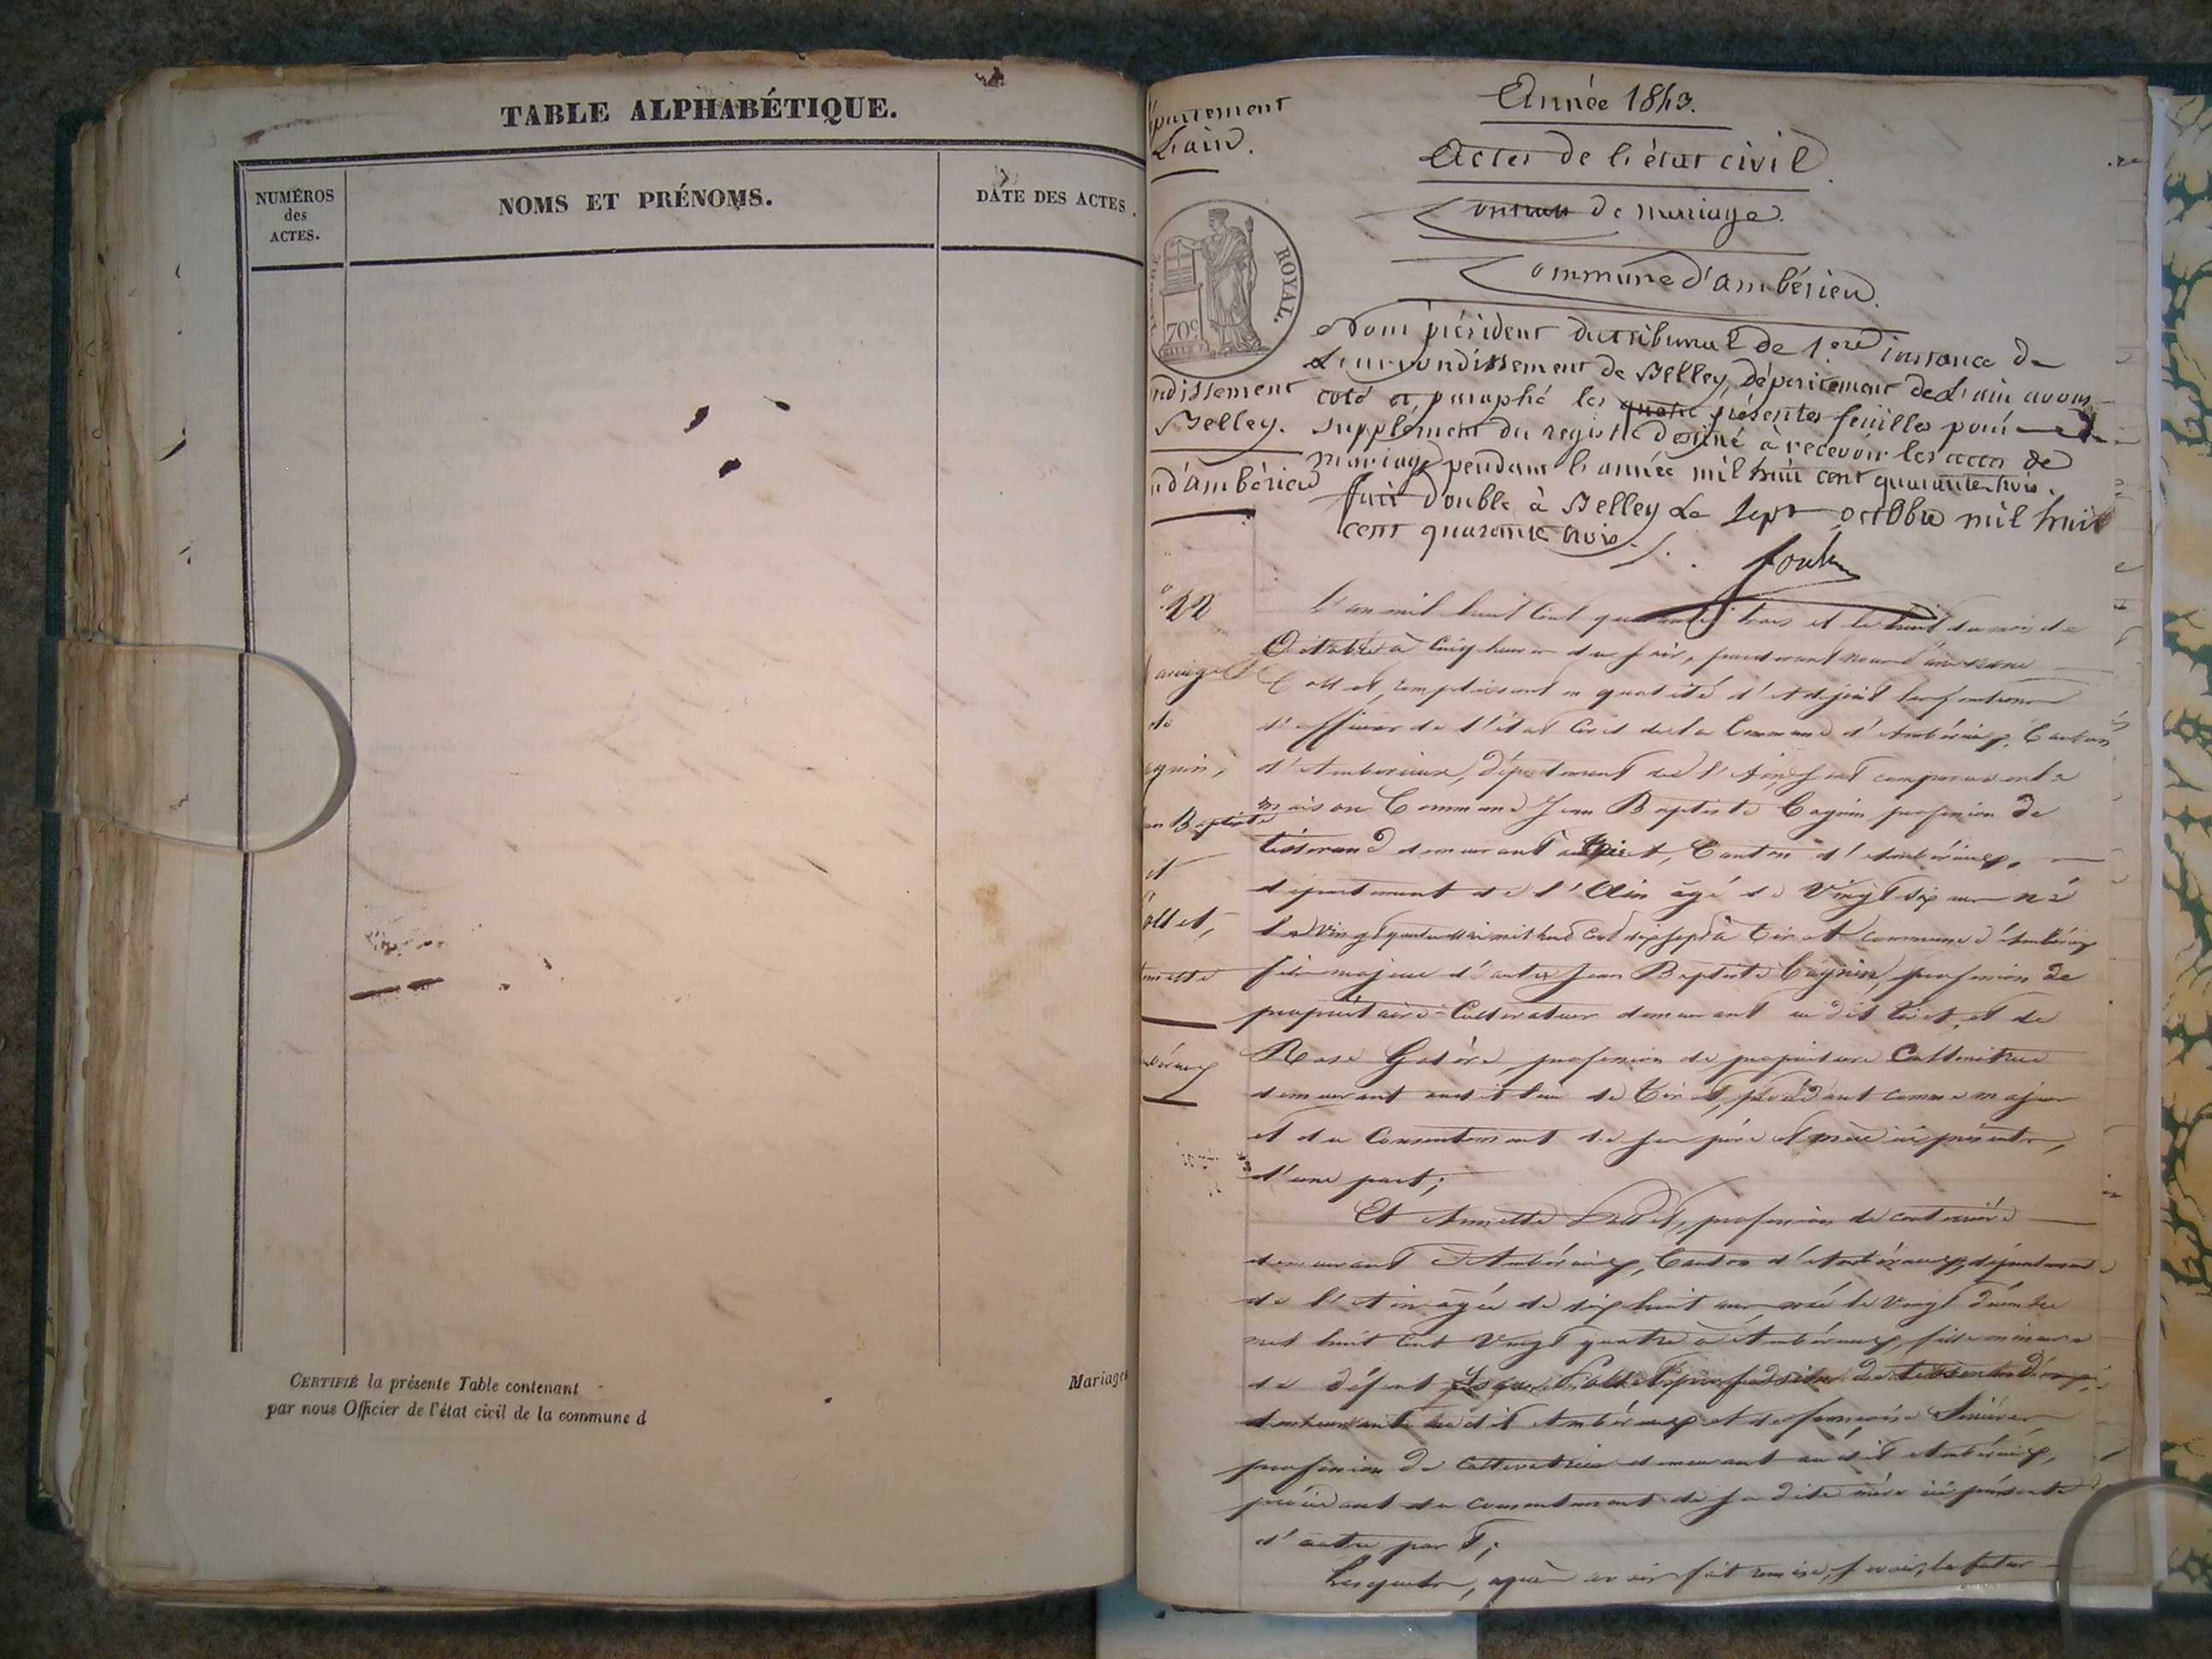 TABLE ALPHABÉTIQUE.
NUMÉROS
des
ACTES.
NOMS ET PRÉNOMS.
DATE DES ACTES.
CERTIFIÉ la présente Table contenant
par nous Officier de l'état civil de la commune d
Mariages
Année 1843.
Actes de l'état civil
de mariage.
Commune d'ambérieu.
épartement
L'ain.
ROYAL.
70c
ndissement
Belley.
d'ambérieu
Nous président du tribunal de 1ere instance de
L'arrondissement de Belley, département de L'ain avons
coté et paraphé les quatre présentes feuilles pour
supplément du registre destiné à recevoir les actes de
mariage pendant l'année mil huit cent quarante trois.
fait double à Belley Le sept octobre mil huit
cent quarante trois.
22
ariage
de
aguin,
an Baptiste
et
ollet,
nnette
L'an mil huit cent quarante trois et le huit du mois de
Octobre à cinq heures du soir, pardevant nous
Collet, remplissant en qualité d'Adjoint les fonctions
d'officier de l'état civil de la Commune d'Ambérieux, Canton
d'Amberieux, département de l'Ain, sont comparus en la
maison Commune Jean Baptiste Cagnin profession de
tisserand demeurant au Tiret, Canton d'Ambérieux,
département de l'Ain âgé de Vingt six ans né
le vingt mil huit cent dix sept à Tiret commune d'Ambérieux
fils majeur d'autre Jean Baptiste Cagnin, profession de
propriétaire-Cultivateur demeurant au dit Tiret, et de
Rose profession de propriétaire Cultivatrice
demeurant audit lieu de Tiret, procédant comme majeur
et du Consentement de ses père et mère ici présents,
d'une part;
Et Annette Collet, profession de couturière
demeurant à Ambérieux, Canton d'Ambérieux, département
de l'Ain âgée de dix huit ans, née le vingt décembre
mil huit cent vingt quatre à Ambérieux, fille mineure
de défunt Collet profession de tisserand
demeurant au dit Ambérieux et de françoise
profession de Cultivatrice demeurant au dit Ambérieux,
procédant du consentement de sa dite mère ici présente
d'autre part;
Lesquels, après avoir fait remise, savoir, le futur